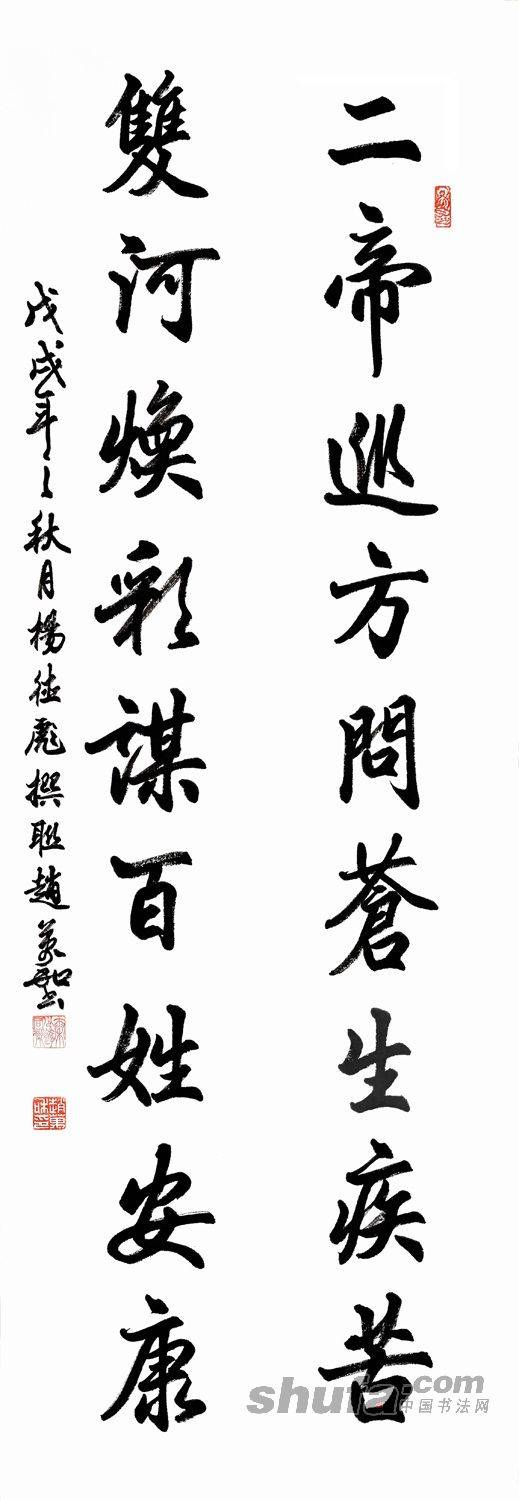 二帝巡方問蒼生疾苦
雙河煥彩謀百姓安康
戊戌年之秋月楊德彪撰聯趙萬
shufa.com
中国书法网